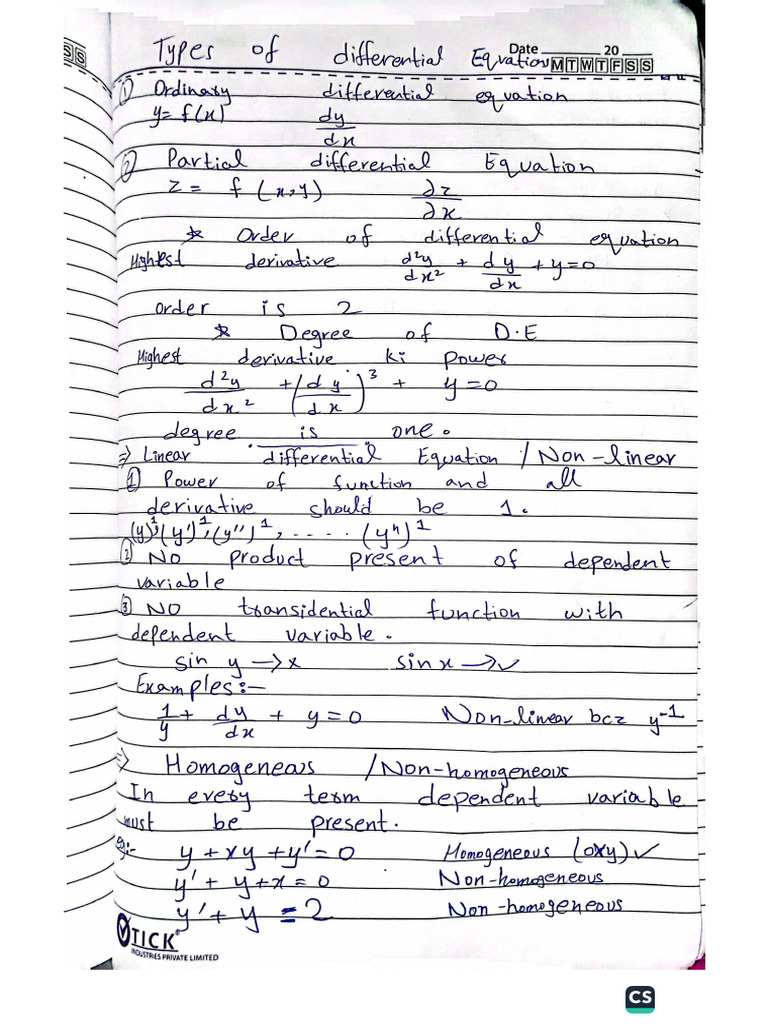 SS
Types of differential Equation
Date ______ 20 ____
MTWTFSS
① Ordinary differential equation
y = f(x) dy/dx
② Partial differential Equation
z = f (x,y) ∂z/∂x
* Order of differential equation
Highest derivative d²y/dx² + dy/dx + y = 0
order is 2
* Degree of D.E
Highest derivative ki power
d²y/dx² + (dy/dx)³ + y = 0
degree is one.
⇒ Linear differential Equation / Non-linear
① Power of function and all
derivative should be 1.
(y)¹, (y')¹, (y'')¹, ..... (yⁿ)¹
② No product present of dependent
variable
③ No transidential function with
dependent variable.
sin y → x sin x → ✓
Examples:-
1/y + dy/dx + y = 0 Non-linear bcz y⁻¹
⇒ Homogeneous / Non-homogeneous
In every term dependent variable
must be present.
eg:- y + xy + y' = 0 Homogeneous (oxy) ✓
y' + y + x = 0 Non-homogeneous
y' + y = 2 Non-homogeneous
TICK®
INDUSTRIES PRIVATE LIMITED
CS